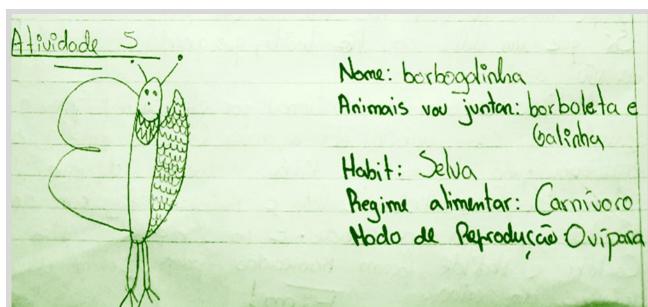 Atividade 5
Nome: borbogalinha
Animais vou juntar: borboleta e
Galinha
Habit: Selva
Regime alimentar: Carnívoro
Modo de Reprodução Ovípara